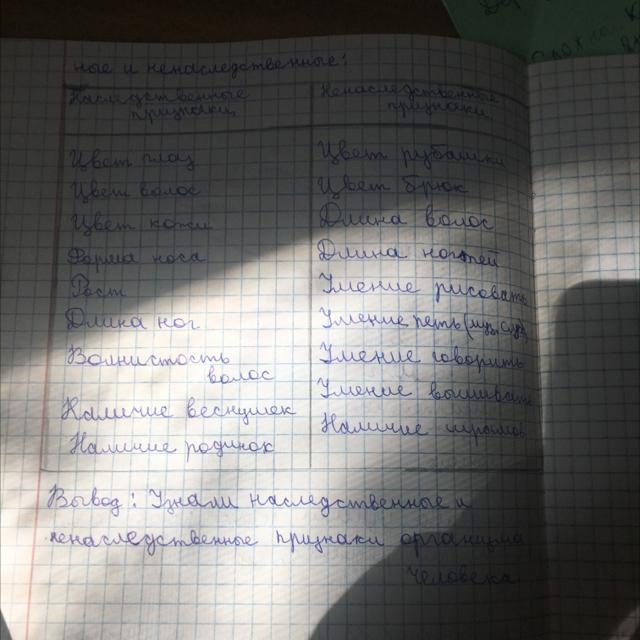 ное и ненаследственные:
Наследственные признаки
Ненаследственные признаки
Цвет глаз
Цвет волос
Цвет кожи
Форма носа
Рост
Длина ног
Волнистость
волос
Наличие веснушек
Наличие родинок
Цвет рубашки
Цвет брюк
Длина волос
Длина ногтей
Умение рисовать
Умение петь
Умение говорить
Умение вышивать
Наличие шрама
Вывод: Узнали наследственные и
ненаследственные признаки организма
человека